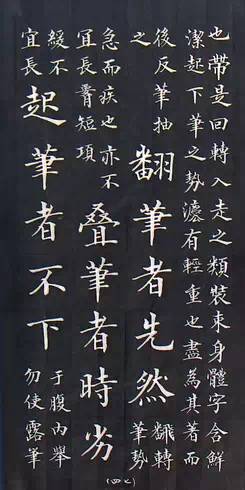 也帶是回轉入走之類裝束身體字含鮮
潔起下筆之勢濃有輕重也盡為其著而
後反筆抽
之
翻筆者先然
飜轉
筆勢
急而疾也亦不
宜長腎短項
疊筆者時劣
緩不
宜長
起筆者不下
于腹內舉
勿使露筆
(四七)